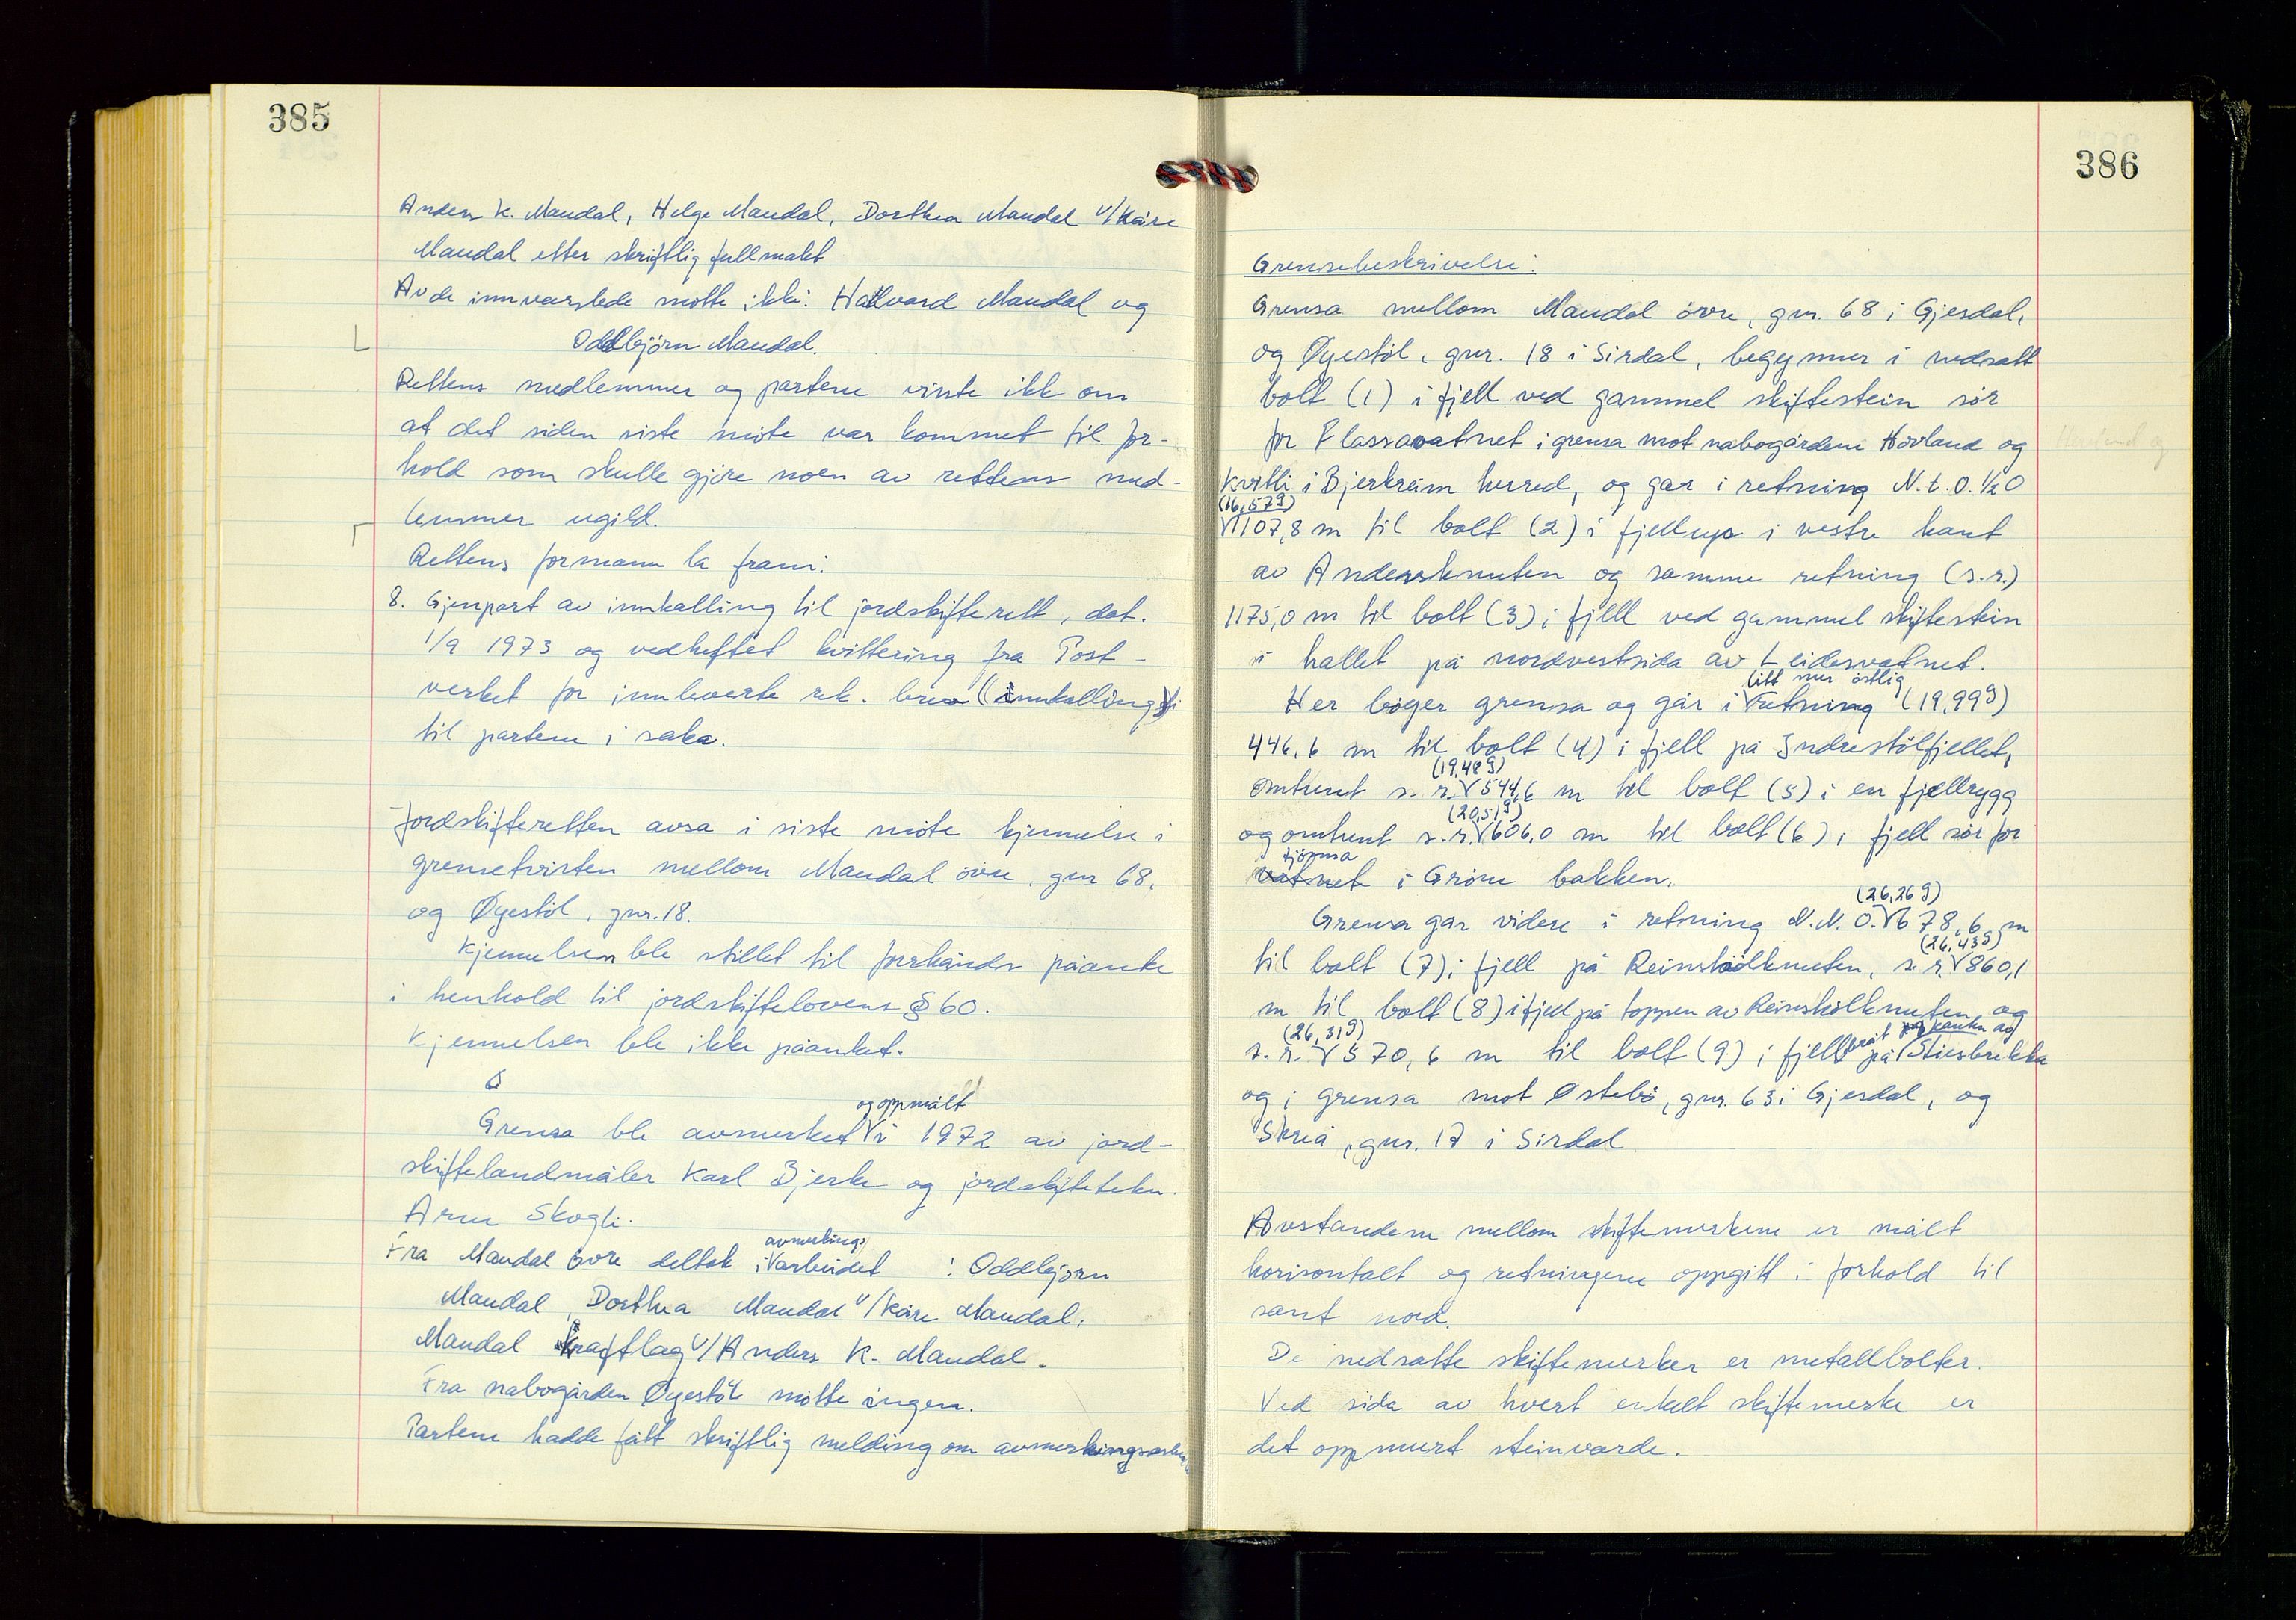 385
Anders K. Maudal, Helge Maudal, Dorthea Maudal v/Kåre
Maudal etter skriftlig fullmakt
Av de innvarslede møtte ikke: Hallvard Maudal og
Oddbjörn Maudal.
Rettens medlemmer og partene visste ikke om
at det siden siste møte var kommet til for-
hold som skulle gjøre noen av rettens med-
lemmer ugild.
Rettens formann la fram:
8. Gjenpart av innkalling til jordskifterett, dat.
1/9 1973 og vedheftet kvittering fra Post-
verket for innleverte rek. brev (innkalling)
til partene i saka.
Jordskifteretten avsa i siste møte kjennelse i
grensetvisten mellom Maudal övre, gnr 68,
og Øyestöl, gnr. 18.
Kjennelsen ble stillet til forhånds påanke
i henhold til jordskiftelovens § 60.
Kjennelsen ble ikke påanket.
og oppmålt
Grensa ble avmerket i 1972 av jord-
skiftelandmåler Karl Bjerke og jordskiftetekn.
Arne Skogli.
avmerkings
Fra Maudal övre deltok i arbeidet : Oddbjørn
Maudal, Dorthea Maudal v/Kåre Maudal,
Maudal Kraftlag v/Anders K. Maudal.
Fra nabogården Øyestöl møtte ingen.
Partene hadde fått skriftlig melding om avmerkings
386
Grensebeskrivelse:
Grensa mellom Maudal övre, gnr. 68 i Gjesdal,
og Øyestöl, gnr. 18 i Sirdal, begynner i nedsatt
bolt (1) i fjell ved gammel skiftestein sör
for Flassavatnet i grensa mot nabogårdene Hovland og
Kvitli i Bjerkreim herred, og går i retning N.t.O.½O
(16,57g)
1107,8 m til bolt (2) i fjellnyp i vestre kant
av Andersknuten og samme retning (s.r.)
1175,0 m til bolt (3) i fjell ved gammel skiftestein
i hallet på nordvestsida av Leidesvatnet.
litt mer östlig
Her böyer grensa og går i retning (19,99g)
446,6 m til bolt (4) i fjell på Indrestölfjellet,
(19,48g)
omtrent s. r. 544,6 m til bolt (5) i en fjellrygg
(20,51g)
og omtrent s.r. 606,0 m til bolt (6) i fjell sör for
tjörna
vatnet i Gröne bakken.
(26,26g)
Grensa går videre i retning N.N.O. 678,6 m
(26,43g)
til bolt (7) i fjell på Reinstölknuten, s.r. 860,1
m til bolt (8) i fjell på toppen av Reinstölknuten, og
(26,31g) kanten av
s.r. 570,6 m til bolt (9) i fjell på Stiesbrekka
og i grensa mot Østebö, gnr. 63 i Gjesdal, og
Skreå, gnr. 17 i Sirdal
Avstandene mellom skiftemerkene er målt
horisontalt og retningene oppgitt i forhold til
sant nord.
De nedsatte skiftemerker er metallbolter.
Ved sida av hvert enkelt skiftemerke er
det oppmurt steinvarde.